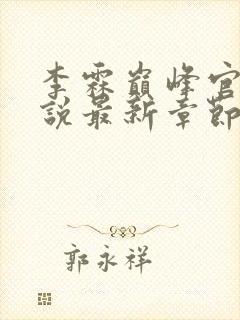 李霖巔峰官
說最新章節
郭永祥